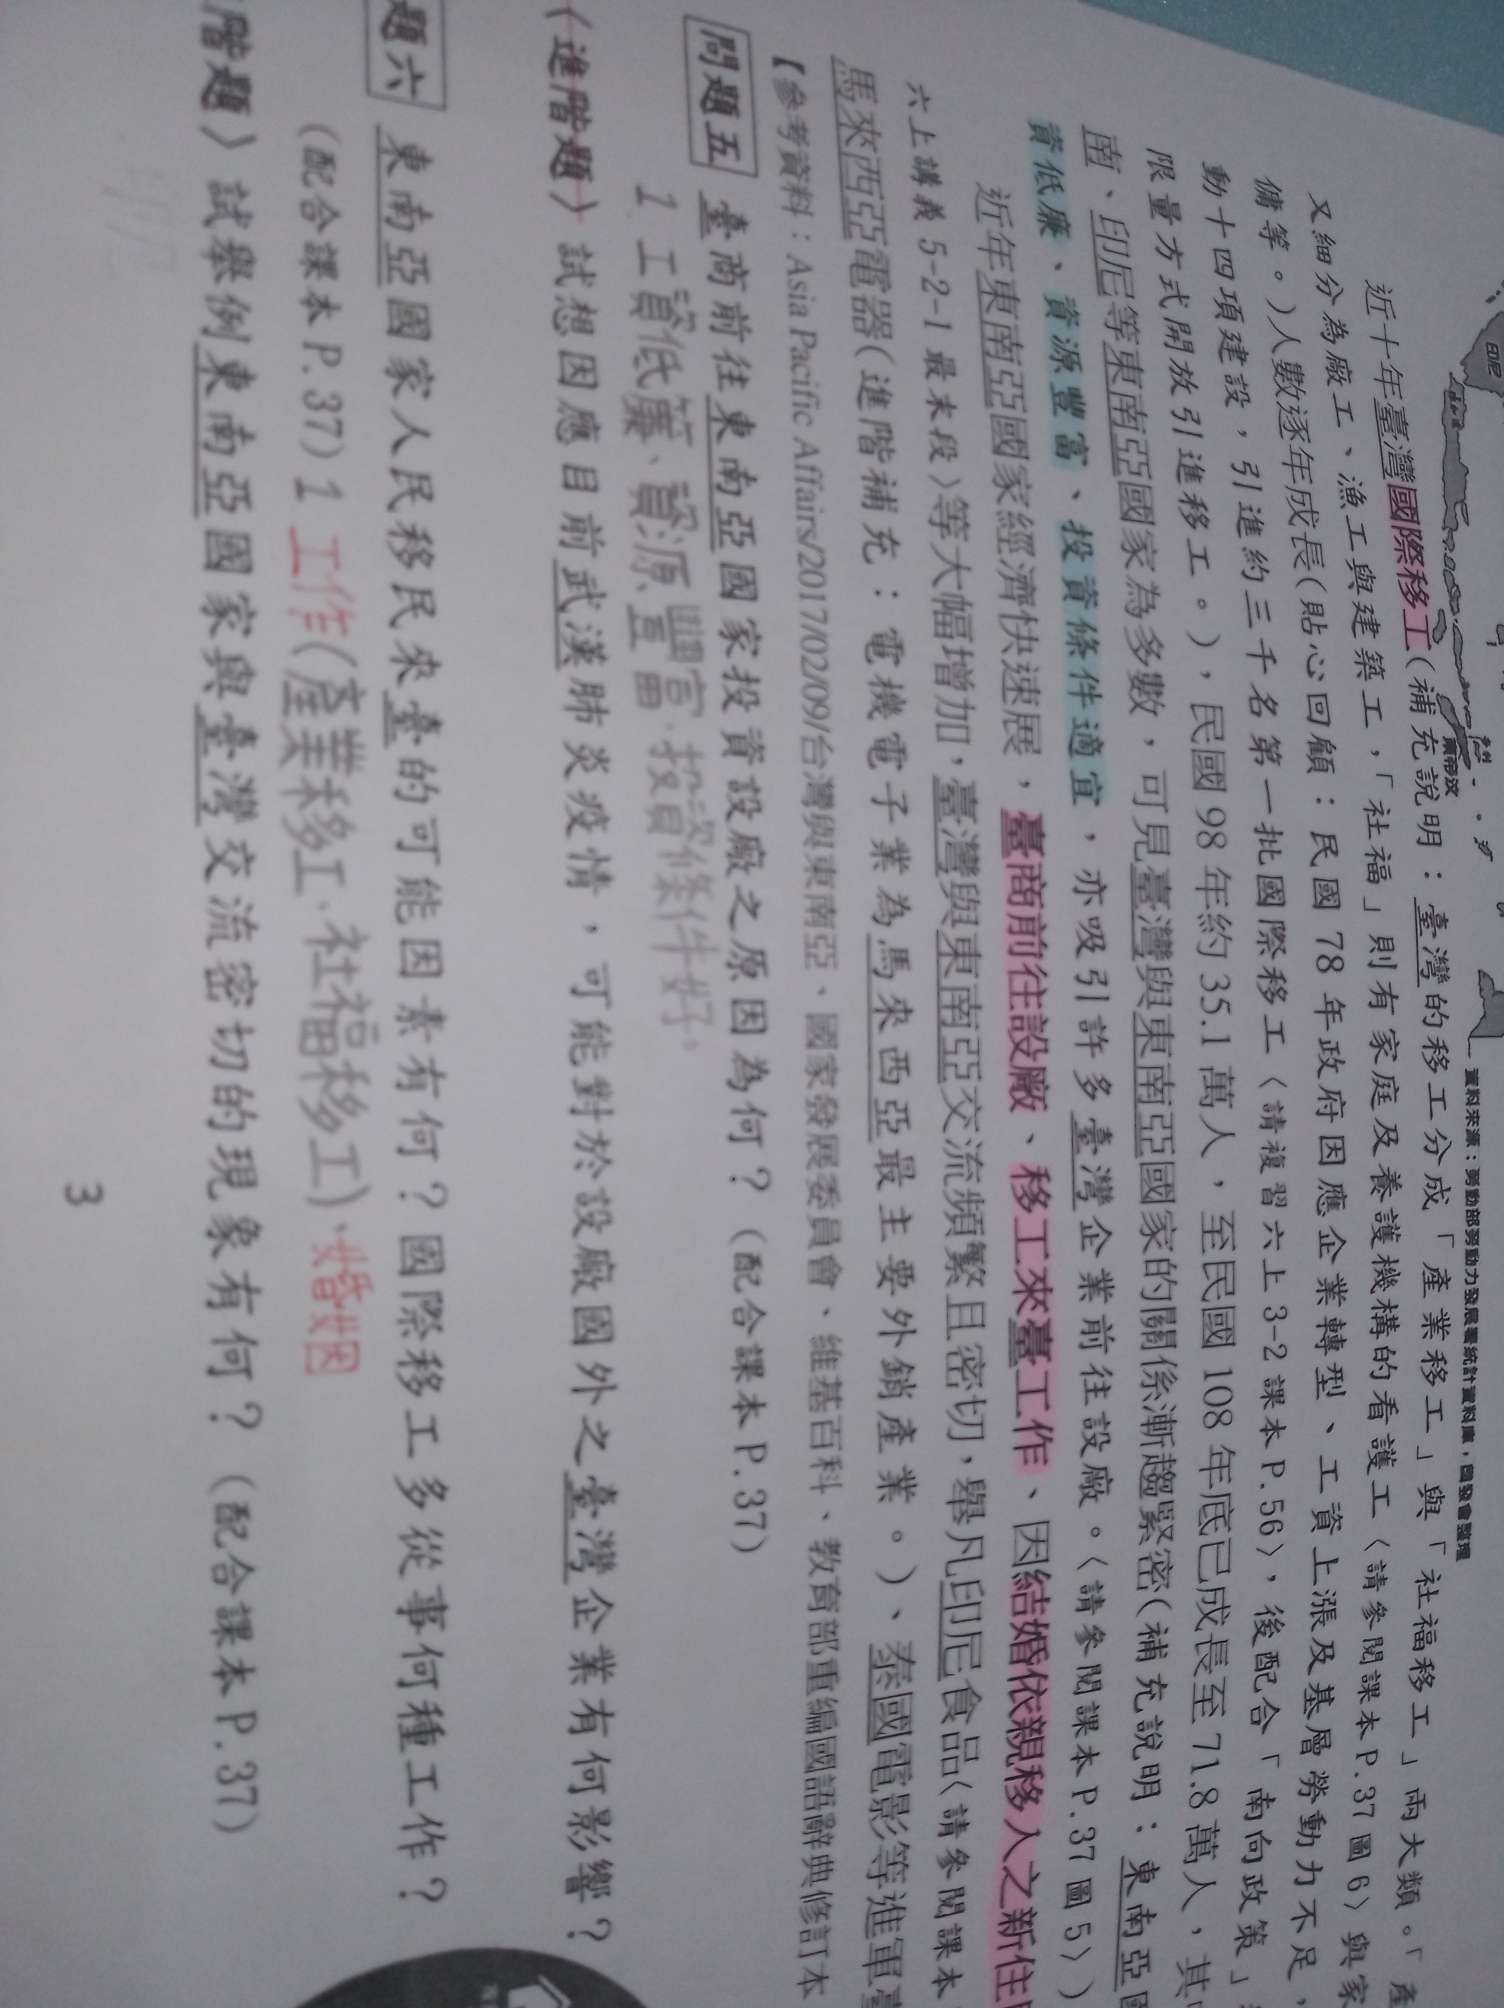 印尼
帝汶
資料來源：勞動部勞動力發展署統計資料庫，國發會整理
近十年臺灣國際移工(補充說明：臺灣的移工分成「產業移工」與「社福移工」兩大類。「產
又細分為廠工、漁工與建築工，「社福」則有家庭及養護機構的看護工〈請參閱課本P.37圖6〉與家
傭等。)人數逐年成長(貼心回顧：民國78年政府因應企業轉型、工資上漲及基層勞動力不足，
動十四項建設，引進約三千名第一批國際移工〈請複習六上3-2課本P.56〉，後配合「南向政策」
限量方式開放引進移工。)，民國98年約35.1萬人，至民國108年底已成長至71.8萬人，其
南、印尼等東南亞國家為多數，可見臺灣與東南亞國家的關係漸趨緊密(補充說明：東南亞
資低廉、資源豐富、投資條件適宜，亦吸引許多臺灣企業前往設廠。〈請參閱課本P.37圖5〉)
近年東南亞國家經濟快速展，臺商前往設廠、移工來臺工作、因結婚依親移入之新住
六上講義5-2-1最末段〉等大幅增加，臺灣與東南亞交流頻繁且密切，舉凡印尼食品〈請參閱課本
馬來西亞電器(進階補充：電機電子業為馬來西亞最主要外銷產業。)、泰國電影等進軍
【參考資料：Asia Pacific Affairs/2017/02/09/台灣與東南亞、國家發展委員會、維基百科、教育部重編國語辭典修訂本
問題五 臺商前往東南亞國家投資設廠之原因為何？(配合課本P.37)
1 工資低廉、資源豐富、投資條件好。
〈進階題〉試想因應目前武漢肺炎疫情，可能對於設廠國外之臺灣企業有何影響？
題六 東南亞國家人民移民來臺的可能因素有何？國際移工多從事何種工作？
(配合課本P.37) 1 工作(產業移工、社福移工)、婚姻
階題〉試舉例東南亞國家與臺灣交流密切的現象有何？(配合課本P.37)
3